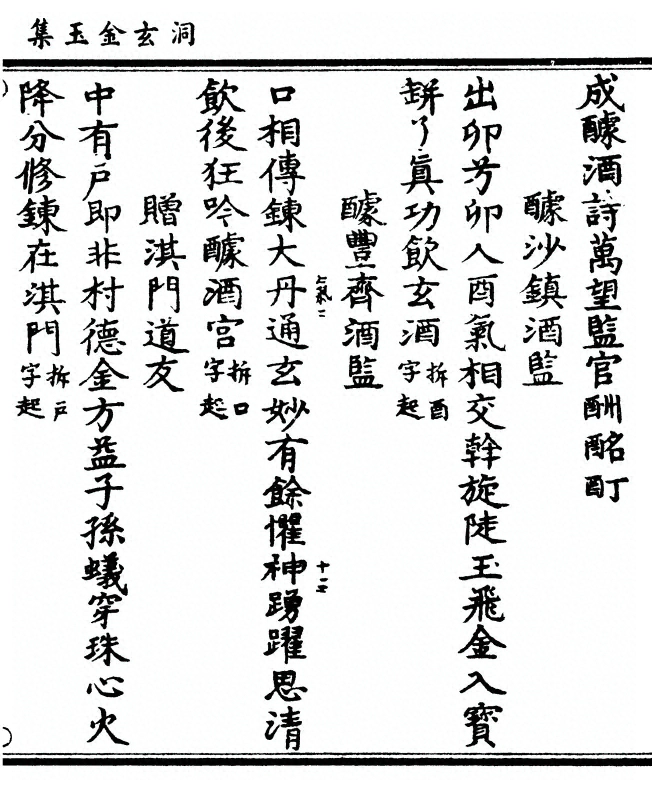 洞玄金玉集
成醵酒詩萬望監官酬酩酊
醵沙鎮酒監
出卯芳卯入酉氣相交幹旋陡玉飛金入寳
缾了真功飲玄酒拆酉字起
醵豐齊酒監
口相傳鍊大丹通玄妙有餘懽神踴躍思清
飲後狂吟醵酒官拆口字起
贈淇門道友
中有戶即非村德金方益子孫蟻穿珠心火
降分修鍊在淇門拆戶字起